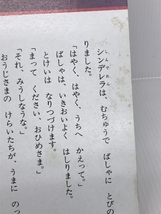 シンデレラは、むちゅうで ばしゃに とびの
りました。
「はやく、はやく、うちへ かえって。」
ばしゃは、いきおいよく はしりました。
とけいは なりつづけます。
「まって ください、おひめさま。」
「それ、みうしなうな。」
おうじさまの けらいたちが、うまに のっ